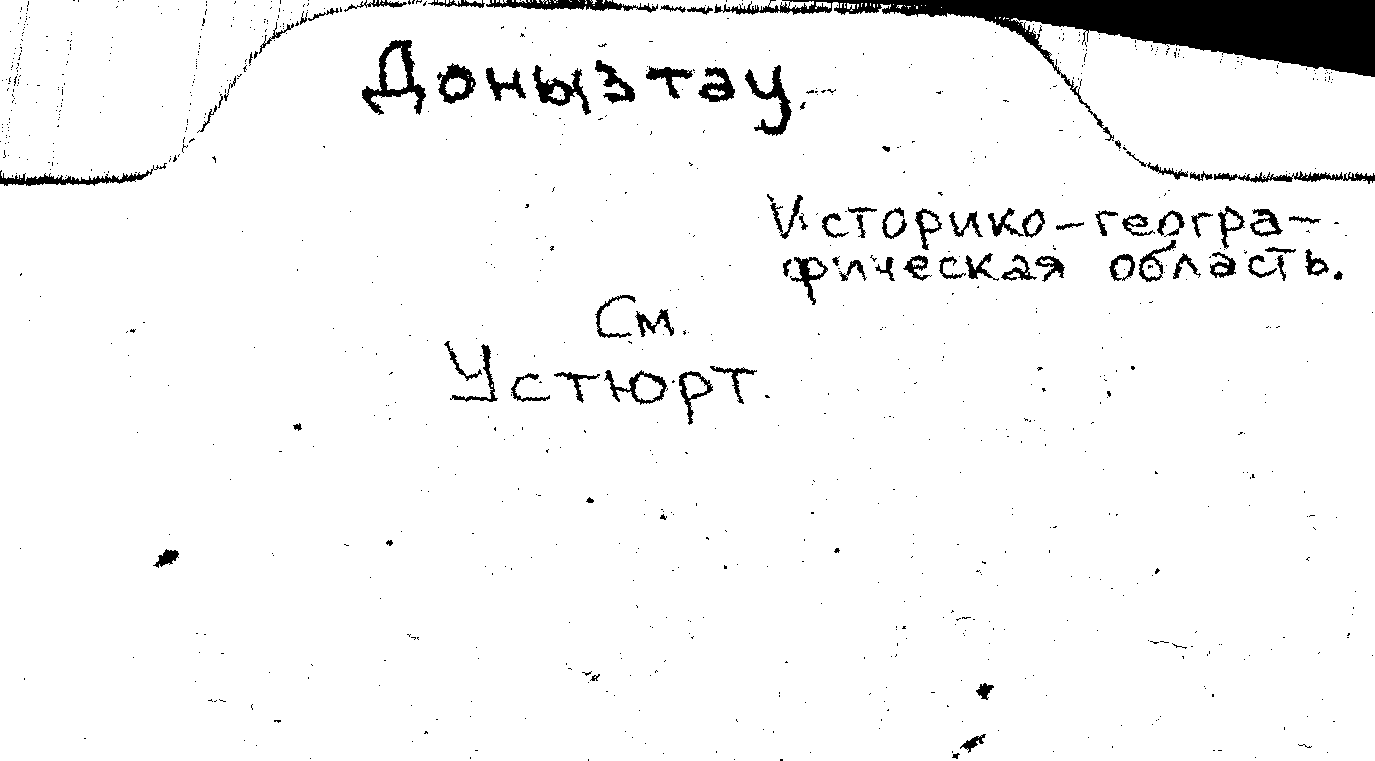 Доныз тау.
Историко-геогра-
фическая область.
См.
Устюрт.